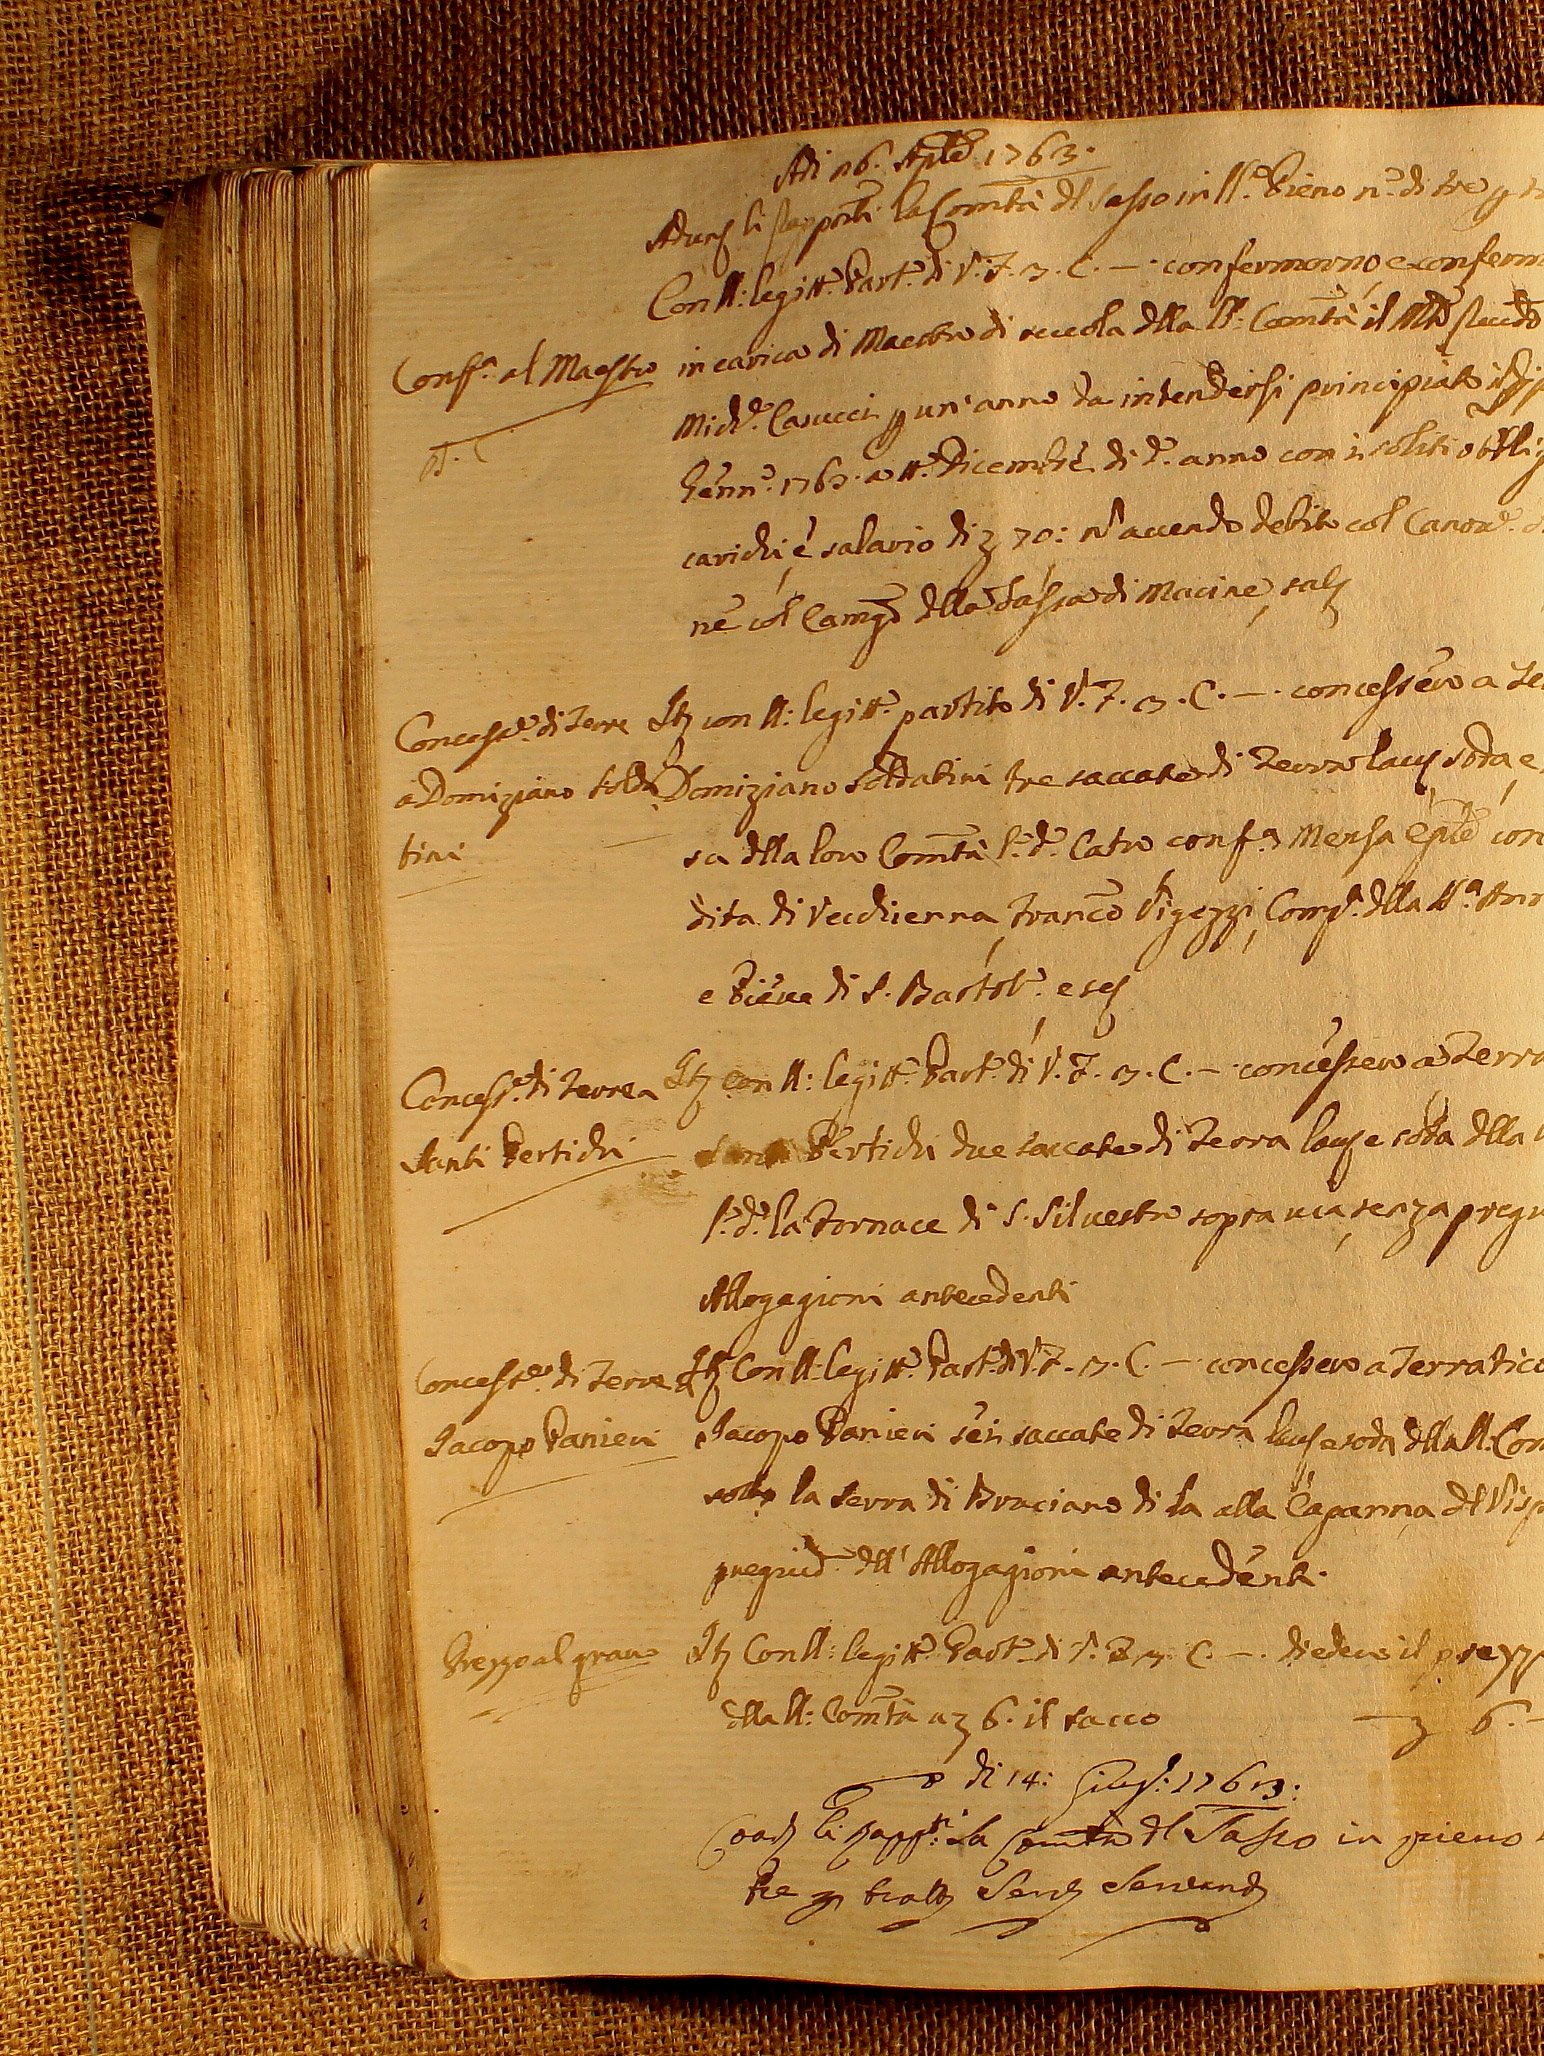 Adi 26. Aple 1763.
Adunq li Rappnti la Comtà dl Sasso in ll.o Pieno n.o di tre p
Con ll: legitt.o Part.o di V. F. 3. C. — confermorno, e conferm
Conff.a al Maestro
in carica di Maestro di scuola dlla ll: Comtà il
Carucci p un' anno da intendersi principiato il dì p
Genn.o 1763. a tt.o Dicembre di d.o anno con i soliti obbli
carichi, e salario di 70: n accendo debito col Canon
ne col Camgo dlla Tassa di Macine, salq
Concess.e di Terre
a Domiziano Solda
tini
Itq con ll: legitt.o partito di V. F. 3. C. — concessero a Te
Domiziano Soldatini tre saccate di Terra lauq soda, e
sa dlla loro Comtà l.o d.o Catro conf.a Mensa Eple con
dita di Vecchienna, Franco Vigezzi, Comp.a dlla SS.a Ann
e Pieve di S. Bartol.o, e seq
Concess.e di Terre a
Santi Pertichi
Itq con ll: legitt.o Part.o di V. F. 3. C. — concessero a Terra
Pertichi due saccate di Terra lauq e soda dlla
l.o d.o la Fornace di S. Silvestro sopra via, senza pregiu
Allogagioni antecedenti
Concess.e di Terre a
Jacopo Panieri
Itq Con ll: legitt.o Part.o di V. F. 3. C. — concessero a Terratico
Jacopo Panieri sei saccate di Terra lauq e soda dlla ll: Com
sotto la serra di Bruciano di la alla Capanna dl Visp
pregiud.o dll' Allogagioni antecedenti.
Prezzo al grano
Itq Con ll: legitt.o Part.o di V. F. 3. C. — diedero il prezz
dlla ll: Comtà a 6. il sacco — 6. —
di 14: Giug.: 1763:
Coadq li Rapp.ti la Comtà dl Sasso in pieno
tre p trattq Serq Servandq